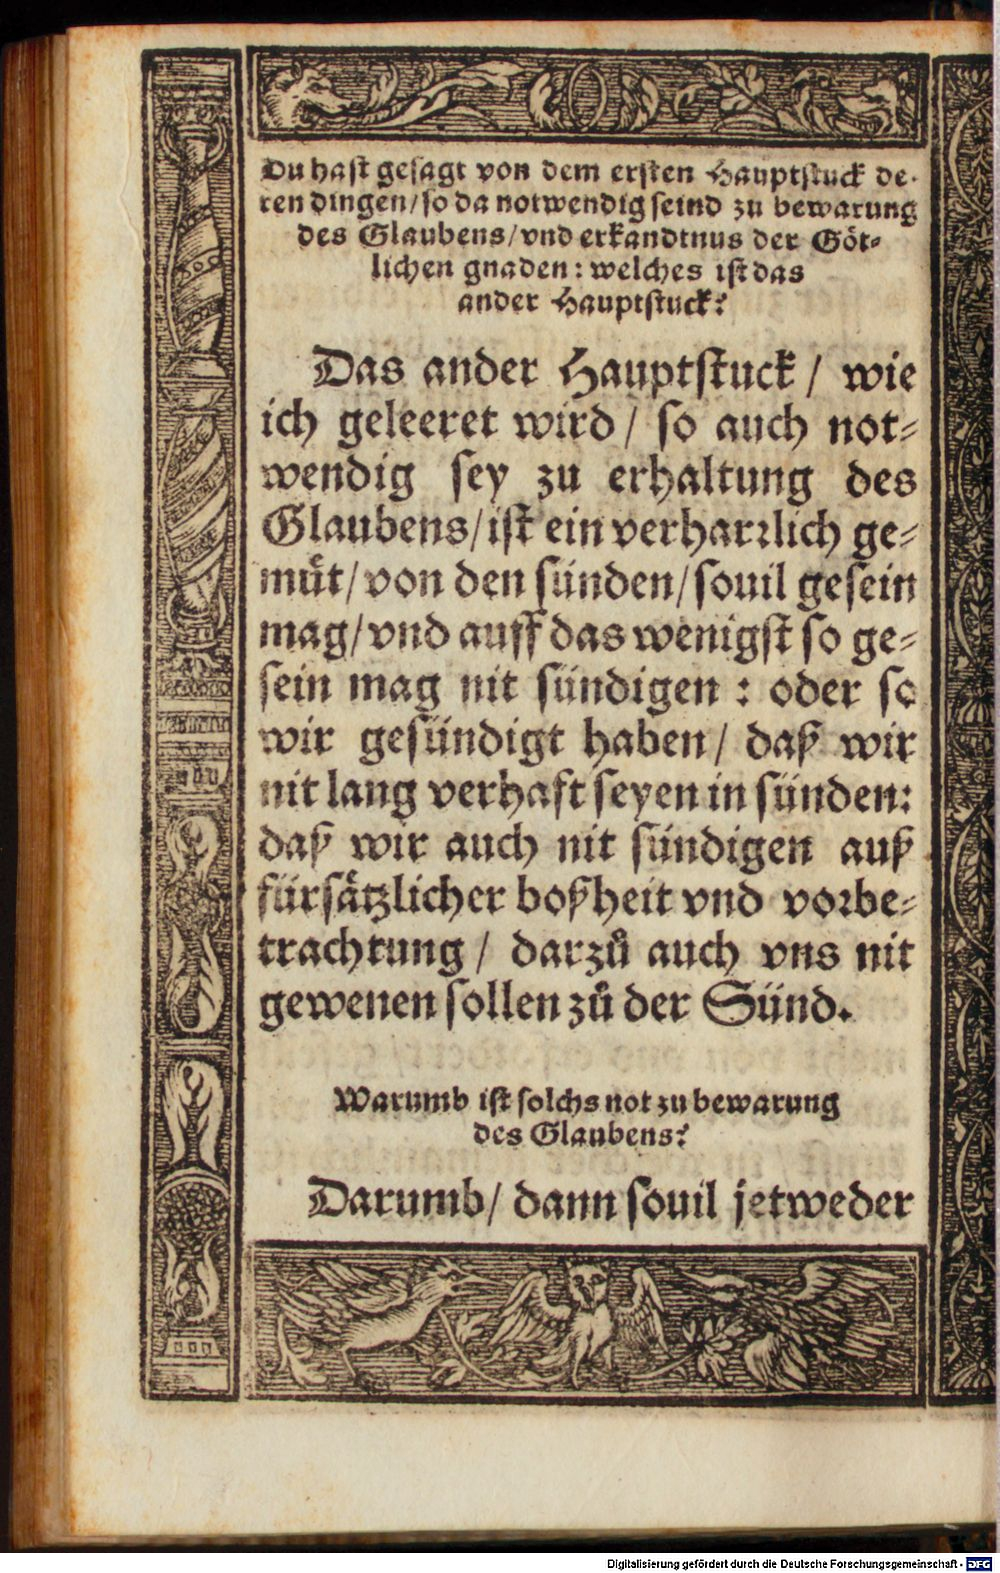 Du hast gesagt von dem ersten Hauptstuck de-
ren dingen/so da notwendig seind zu bewarung
des Glaubens/vnd erkandtnus der Göt-
lichen gnaden: welches ist das
ander Hauptstuck?
Das ander Hauptstuck/ wie
ich geleeret wird/ so auch not-
wendig sey zu erhaltung des
Glaubens/ist ein verharrlich ge-
muͤt/von den sünden/souil gesein
mag/vnd auff das wenigst so ge-
sein mag nit sündigen: oder so
wir gesündigt haben/ daß wir
nit lang verhaft seyen in sünden:
daß wir auch nit sündigen auß
fürsaͤtzlicher boßheit vnd vorbe-
trachtung/ darzuͦ auch vns nit
gewenen sollen zuͦ der Sünd.
Warumb ist solchs not zu bewarung
des Glaubens?
Darumb/ dann souil jetweder
Digitalisierung gefördert durch die Deutsche Forschungsgemeinschaft - DFG